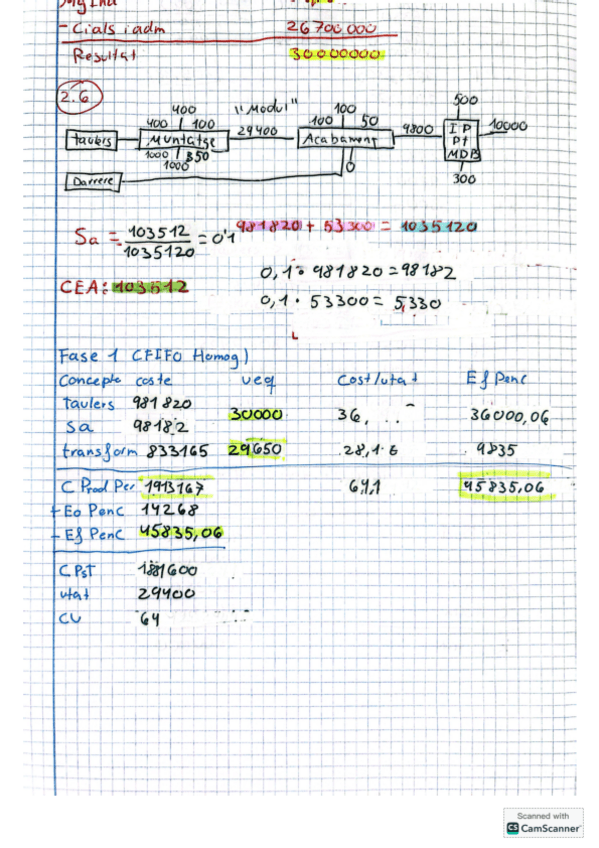 - Cials i adm 26700 000
Resultat 30000000
2.6
400 "Modul" 100 500
400 100 100 50
Taulers Muntatge 29400 Acabament 9800 IP 10000
Pt
MDB
1000 350
1000 0 300
Darrere
Sa = 103512 / 1035120 = 0'1 981820 + 53300 = 1035120
0,1 • 981820 = 98182
CEA: 103512
0,1 • 53300 = 5,330
Fase 1 (FIFO Homog)
Concepte coste ueq Cost/utat Ef Penc
Taulers 981 820
30000 36, 36000,06
Sa 98182
transform 833165 29650 28,1 9835
C Prod Per 1913167 64,1 45835,06
+ Eo Penc 14268
- Ef Penc 45835,06
C PsT 1881600
utat 29400
CU 64
Scanned with
CS CamScanner